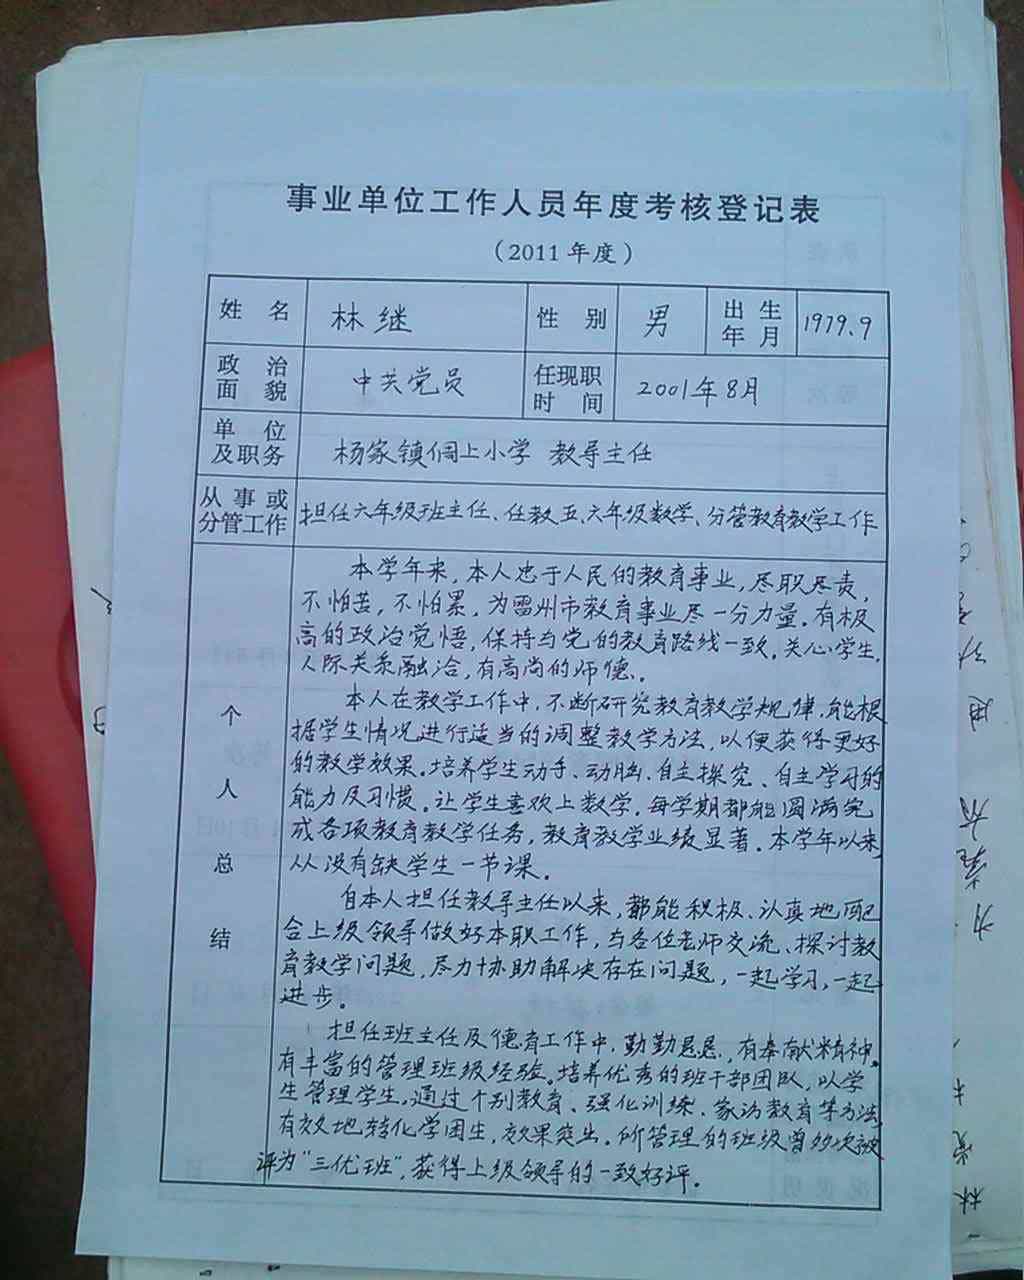 事业单位工作人员年度考核登记表
（2011 年度）
姓 名 林继 性 别 男 出 生 年 月 1979.9
政 治 面 貌 中共党员 任现职 时 间 2001年8月
单 位 及职务 杨家镇倜上小学 教导主任
从 事 或 分管工作 担任六年级班主任、任教五、六年级数学、分管教育教学工作
个 人 总 结
本学年来，本人忠于人民的教育事业，尽职尽责，
不怕苦，不怕累，为雷州市教育事业尽一分力量。有极
高的政治觉悟，保持与党的教育路线一致。关心学生，
人际关系融洽，有高尚的师德。
本人在教学工作中，不断研究教育教学规律，能根
据学生情况进行适当的调整教学方法，以便获得更好
的教学效果。培养学生动手、动脑、自主探究、自主学习的
能力及习惯。让学生喜欢上数学。每学期都能圆满完
成各项教育教学任务，教育教学业绩显著。本学年以来，
从没有缺学生一节课。
自本人担任教导主任以来，都能积极、认真地配
合上级领导做好本职工作，与各位老师交流、探讨教
育教学问题，尽力协助解决存在问题，一起学习，一起
进步。
担任班主任及德育工作中，勤勤恳恳，有奉献精神。
有丰富的管理班级经验。培养优秀的班干部团队，以学
生管理学生。通过个别教育、强化训练、家访教育等方法
有效地转化学困生，效果突出。所管理的班级曾多次被
评为“三优班”，获得上级领导的一致好评。